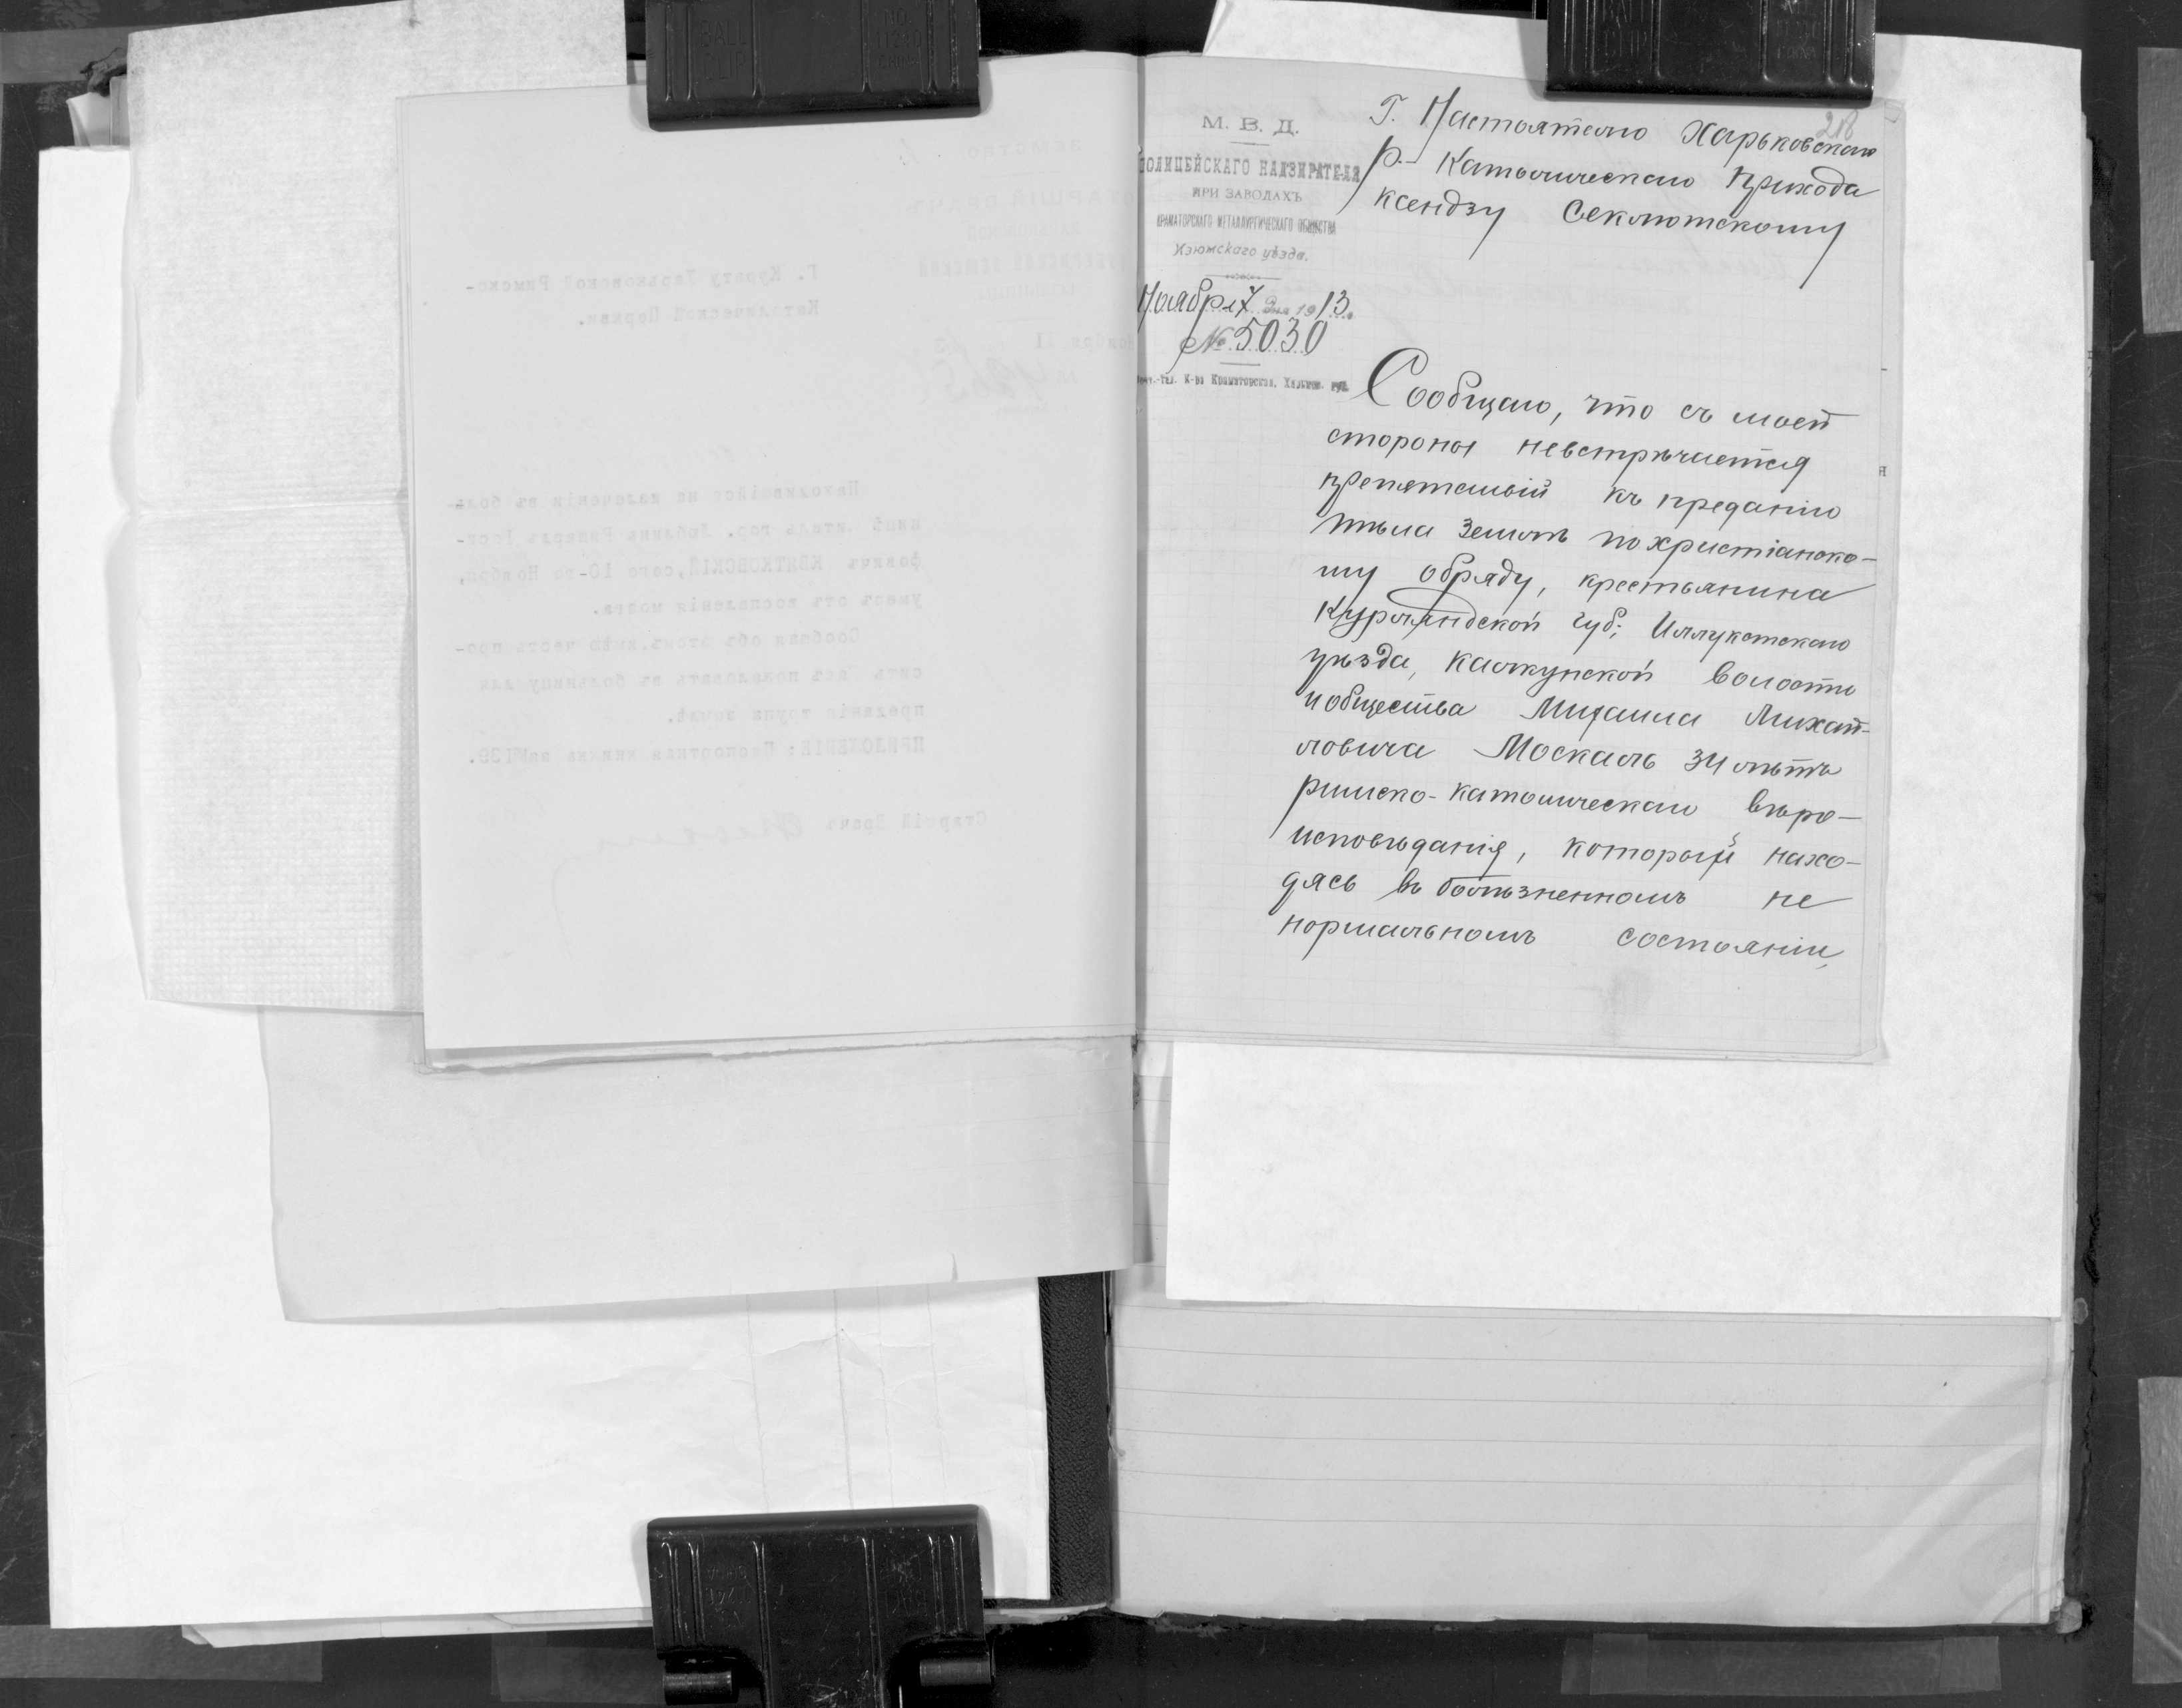 218
М. В. Д.
ПОЛИЦЕЙСКАГО НАДЗИРАТЕЛЯ
ПРИ ЗАВОДАХЪ
КРАМАТОРСКАГО МЕТАЛЛУРГИЧЕСКАГО ОБЩЕСТВА
Изюмскаго уѣзда.
Ноября 7 дня 1913
№ 5030
Краматорская, Харьков. губ.
Г. Настоятелю Харьковскаго
Р.- Католическаго Прихода
Ксендзу
Сообщаю, что съ моей
стороны невстрѣчается
препятствій къ преданію
тѣла землѣ по христіанско-
му обряду, крестьянина
Курляндской губ; Иллукстскаго
уѣзда, Калкунской волости
и общества Михаила Михай-
ловича Москаль 34 лѣтъ
римско-католическаго вѣро-
исповѣданія, который нахо-
дясь въ болѣзненномъ не
нормальномъ состояніи,
Г. Курату Харьковской Римско-
Католической Церкви.
Находившійся на излеченіи въ боль-
ницѣ житель гор. Люблина
КВЯТКОВСКІЙ, сего 10-го Ноября,
умеръ отъ воспаленія мозга.
Сообщая объ этомъ, имѣю честь про-
сить васъ пожаловать въ больницу для
преданія трупа землѣ.
ПРИЛОЖЕНІЕ: Паспортная книжка за №139.
Старшій Врачъ